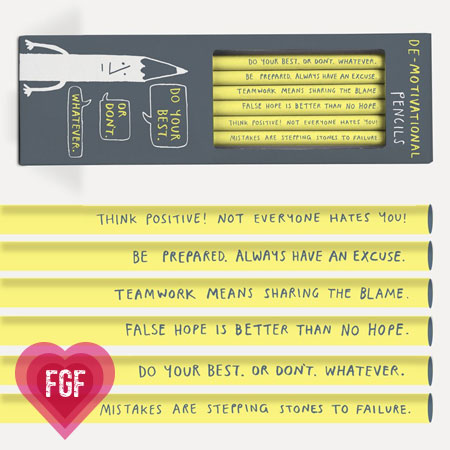 DO YOUR BEST, OR DON'T. WHATEVER.
BE PREPARED. ALWAYS HAVE AN EXCUSE.
TEAMWORK MEANS SHARING THE BLAME
FALSE HOPE IS BETTER THAN NO HOPE.
THINK POSITIVE! NOT EVERYONE HATES YOU!
MISTAKES ARE STEPPING STONES TO FAILURE.
DE-MOTIVATIONAL
PENCILS
DO YOUR
BEST.
OR
DON'T.
WHATEVER.
THINK POSITIVE! NOT EVERYONE HATES YOU!
BE PREPARED. ALWAYS HAVE AN EXCUSE.
TEAMWORK MEANS SHARING THE BLAME.
FALSE HOPE IS BETTER THAN NO HOPE.
DO YOUR BEST. OR DON'T. WHATEVER.
MISTAKES ARE STEPPING STONES TO FAILURE.
FGF